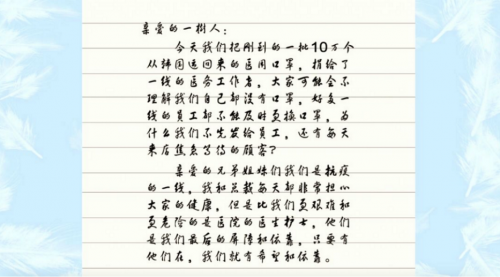 亲爱的一树人：
今天我们把刚到的一批10万个
从韩国运回来的医用口罩，捐给了
一线的医务工作者，大家可能会不
理解我们自己都没有口罩，好多一
线的员工都不能及时更换口罩，为
什么我们不先发给员工，还有每天
来店焦急等待的顾客？
亲爱的兄弟姐妹们我们是抗疫
的一线，我和总裁每天都非常担心
大家的健康，但是比我们更艰难和
更危险的是医院的医生护士，他们
是我们最后的屏障和依靠，只要有
他们在，我们就有希望和依靠。